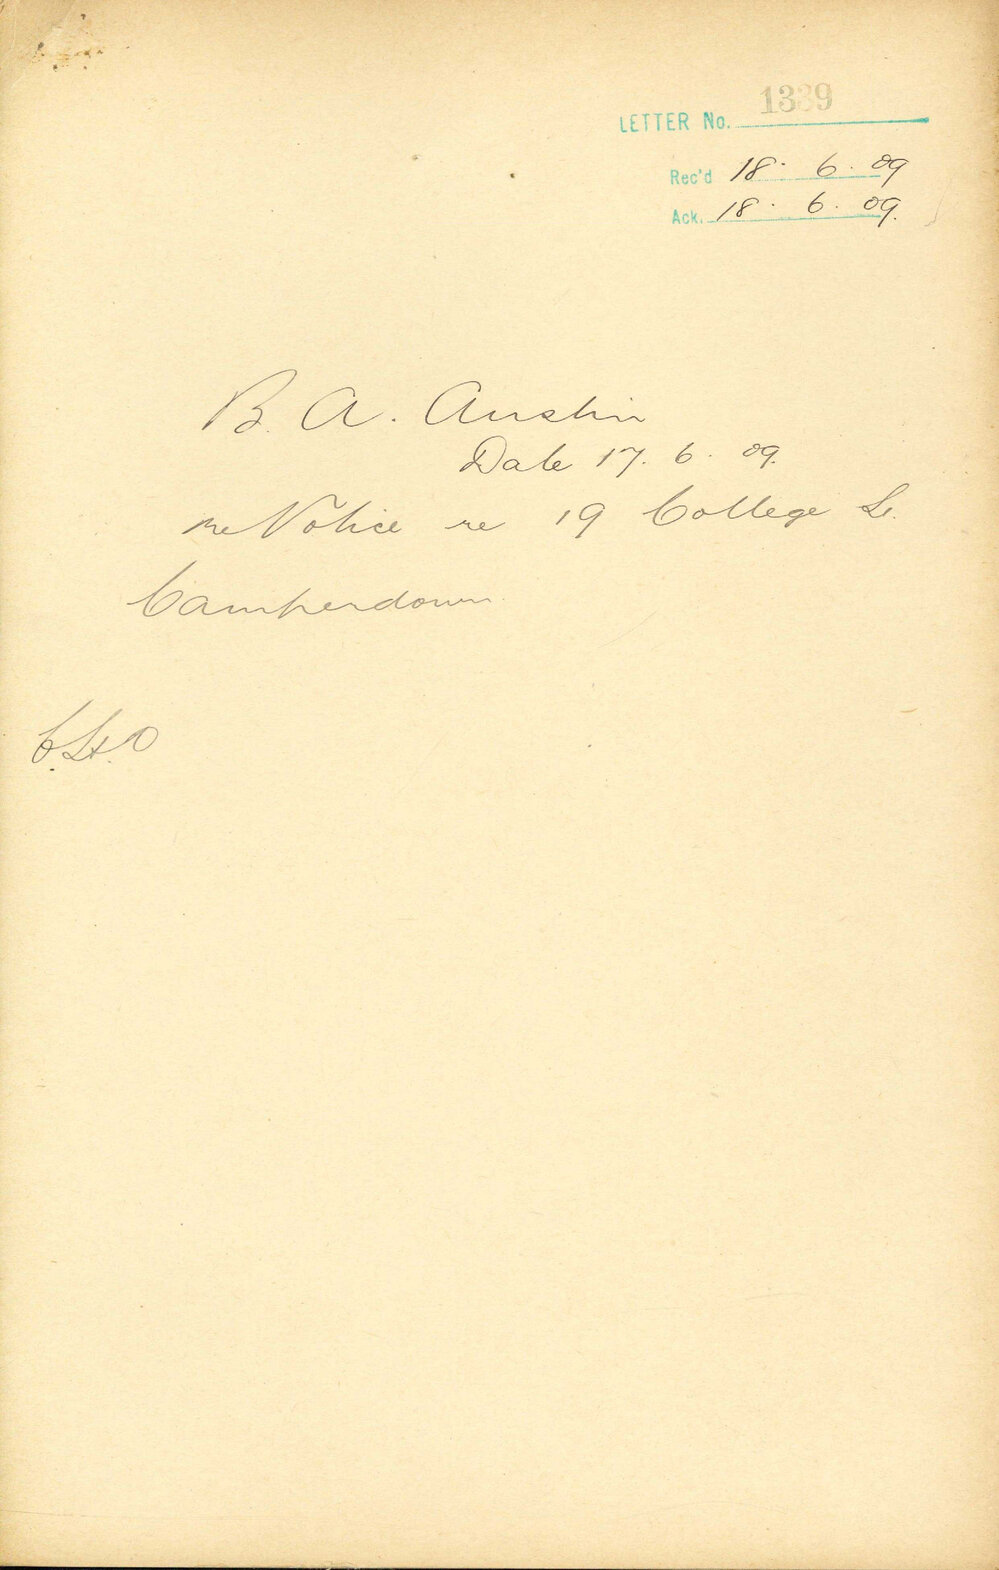 LETTER No. 1339
Rec'd 18. 6. 09
Ack. 18. 6. 09.
B. A. Austin
Date 17. 6. 09.
re Notice re 19 College St.
Camperdown